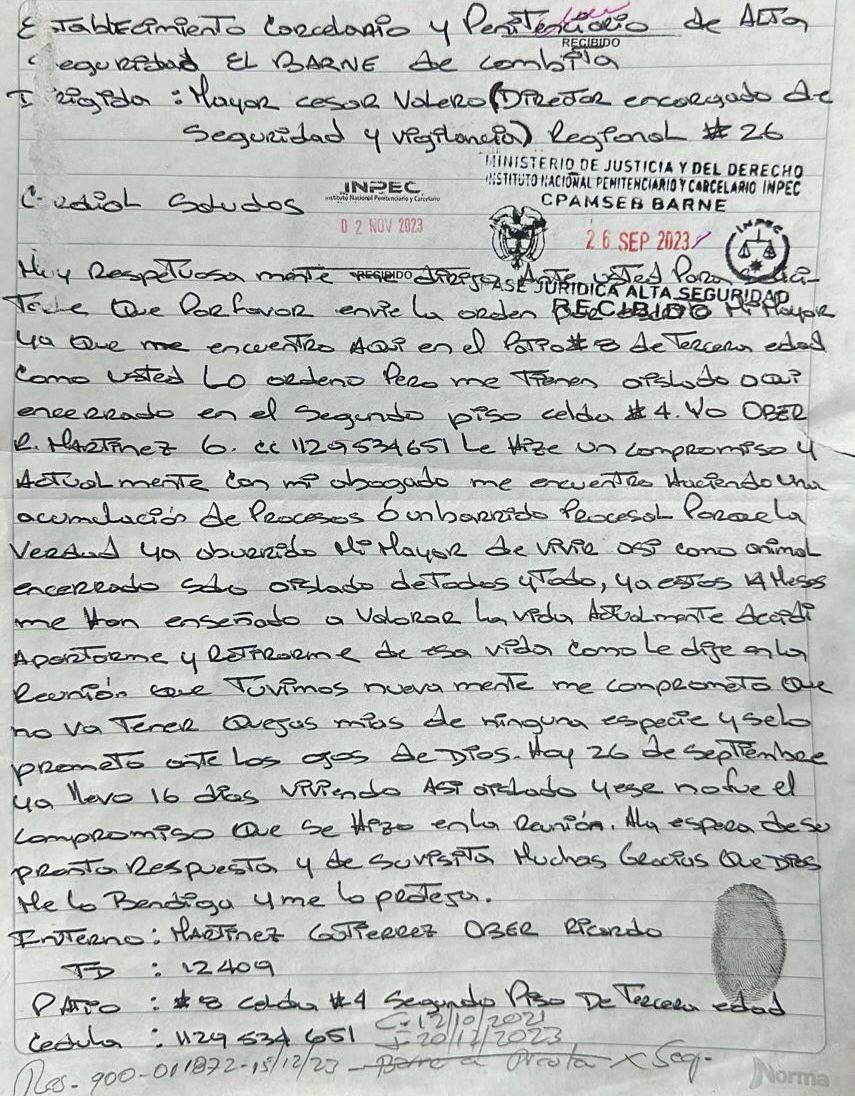 Establecimiento Carcelario y Penitenciario de Alta
RECIBIDO
Seguridad EL BARNE de Combita
Dirigida : Mayor cesar Valero (Director encargado de
Seguridad y vigilancia) Regional # 26
MINISTERIO DE JUSTICIA Y DEL DERECHO
INSTITUTO NACIONAL PENITENCIARIO Y CARCELARIO INPEC
CPAMSEB BARNE
INPEC
Instituto Nacional Penitenciario y Carcelario
Cordial Saludos
02 NOV 2023
26 SEP 2023
INPEC
RECIBIDO
Muy Respetuosa mente me dirijo Ante usted Para solici-
FASE JURIDICA ALTA SEGURIDAD
RECIBIDO
Tarle Que Por favor envie la orden Mi Mayor
ya Que me encuentro AQui en el Patio # 8 de Tercera edad
Como usted Lo ordeno Pero me Tienen aislado aqui
encerrado en el Segundo piso celda # 4. Yo OBER
R. MARTINEZ G. cc 1129534651 Le Hize un compromiso y
Actual mente Con mi abogado me encuentro Haciendo una
acumulación de Procesos ó un barrido Procesal Porque la
Verdad ya aburrido Mi Mayor de vivir asi como animal
encerrado solo aislado de Todos y Todo, ya estos 14 Meses
me Han enseñado a Valorar La vida Actualmente decidi
Apartarme y Retirarme de esa vida como le dije en la
Reunión que Tuvimos nueva mente me comprometo Que
no va Tener Quejas mias de ninguna especie y se lo
prometo ante los ojos de Dios. Hoy 26 de septiembre
ya llevo 16 dias viviendo Asi aislado y ese no fue el
Compromiso Que se Hizo en la Reunión. A la espera de su
pronta Respuesta y de su visita Muchas Gracias Que Dios
Me lo Bendiga y me lo proteja.
Interno : MARTINEZ GUTIERREZ OBER Ricardo
TD : 12409
PATIO : # 8 Celda # 4 Segundo Piso De Tercera edad
Cedula : 1129 534 651
C- 12/10/2021
I- 20/12/2023
Res- 900-011872-15/12/23 - Barne a x Seg-
Norma